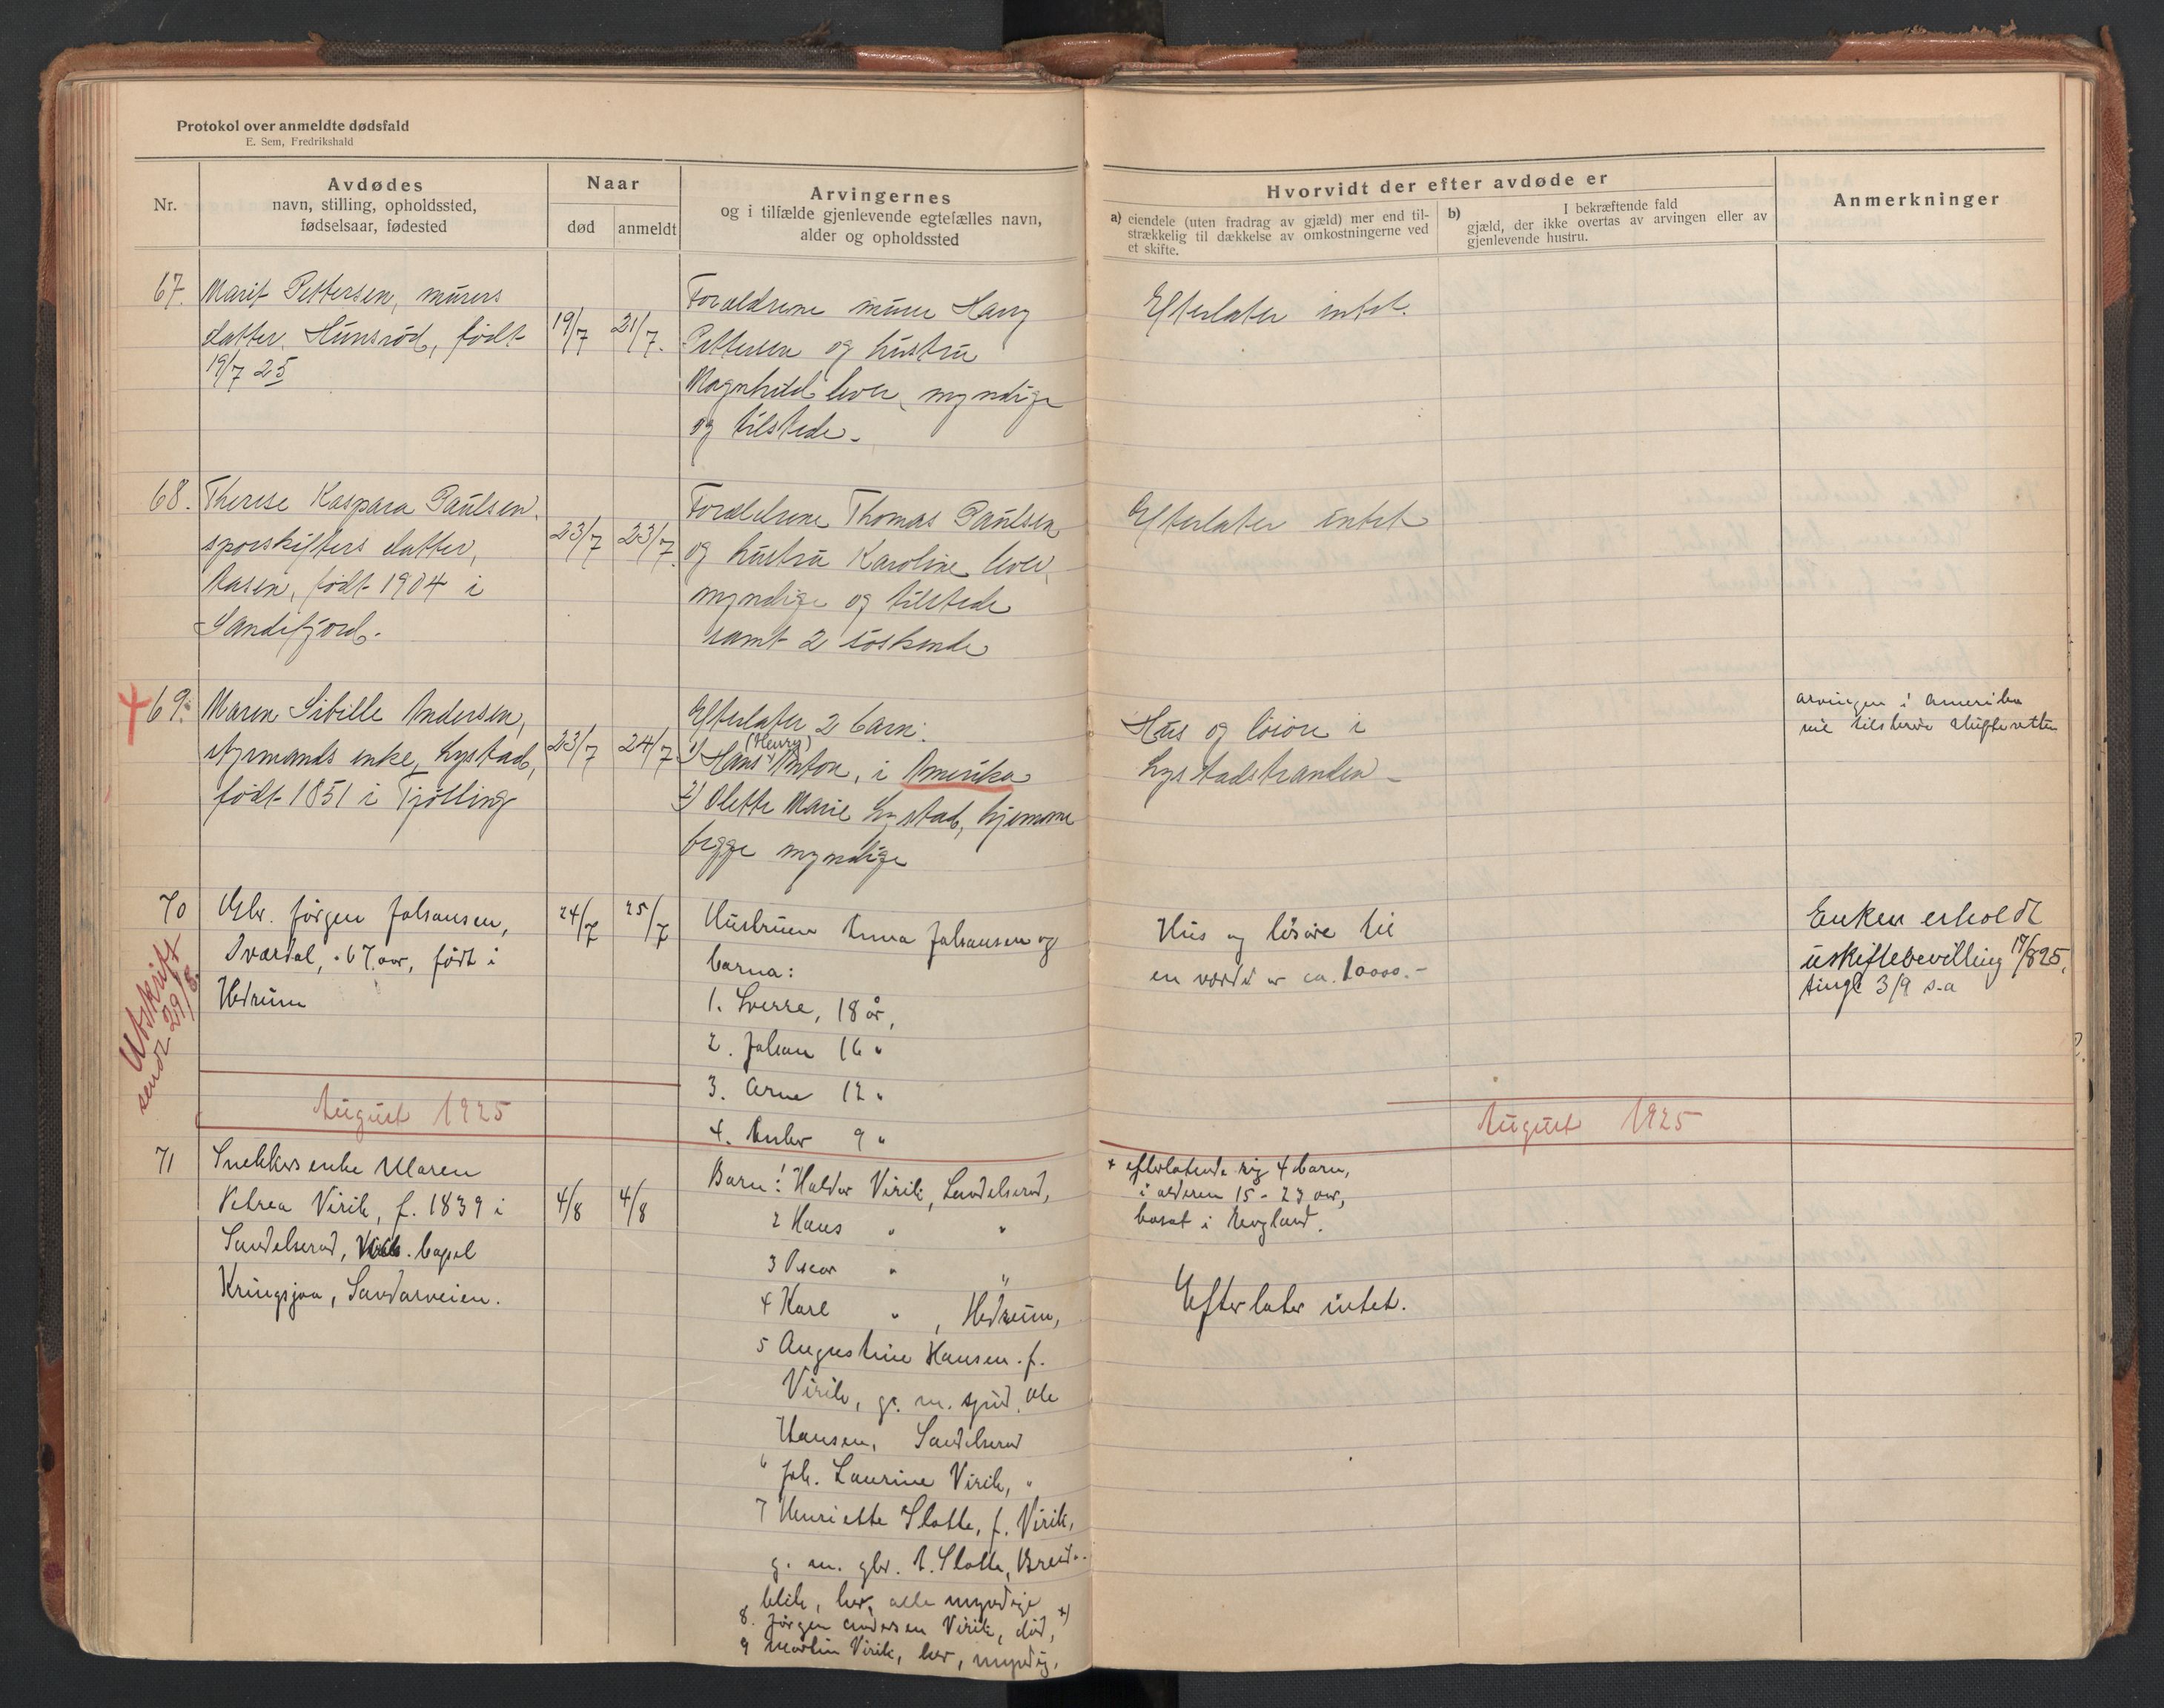 Protokol over anmeldte dødsfald
E. Sem, Fredrikshald
Nr.
Avdødes
navn, stilling, opholdssted,
fødselsaar, fødested
Naar
død
anmeldt
Arvingernes
og i tilfælde gjenlevende egtefælles navn,
alder og opholdssted
Hvorvidt der efter avdøde er
a) eiendele (uten fradrag av gjæld) mer end til-
strækkelig til dækkelse av omkostningerne ved
et skifte.
b) I bekræftende fald
gjæld, der ikke overtas av arvingen eller av
gjenlevende hustru.
Anmerkninger
67. Marit Pettersen, murers
datter. Hunsrød, født
19/7 25
19/7 21/7.
Forældrene murer Harry
Pettersen og hustru
Magnhild lever, myndige
og tilstede.
Efterlater intet.
68. Therese Kaspara Paulsen,
sporskifters datter,
Aasen, født 1904 i
Sandefjord.
23/7 23/7.
Forældrene Thomas Paulsen
og hustru Karoline lever,
myndige og tilstede
samt 2 søskende
Efterlater intet
69. Maren Sibille Andersen,
styrmands enke, Lystad,
født 1851 i Tjølling
23/7 24/7
Efterlater 2 barn:
(Henry)
1) Hans Anton, i Amerika
2) Olette Marie Lystad, hjemme
begge myndige
Hus og løsøre i
Lystadstranden
arvingen i Amerika
vil tilskrive skifteretten
70 Gbr. Jørgen Johansen,
Sværdal, 67 aar, født i
Hedrum
Utskrift
sendt 29/8
24/7 25/7
Hustruen Anna Johansen og
barna:
1. Sverre, 18 år,
2. Johan 16 "
3. Arne 12 "
4. 9 "
Hus og løsøre til
en værdi av ca. 10000.-
Enken erholdt
uskiftebevilling 17/8 25,
tingl 3/9 s.a
August 1925
August 1925
71 Snekkers enke Maren
Petrea Virik, f. 1839 i
Sandelserød, bopel
Kringsjaa, Sandarveien.
4/8 4/8
Barn: Halvor Virik, Sandelserød,
2 Hans " "
3 Oscar " "
4 Karl " , Hedrum,
5 Augustine Hansen f.
Virik, g. m. Ole
Hansen, Sandelserød
6 Joh. Laurine Virik, "
7 Henriette Slotte, f. Virik,
g. m. gbr. A. Slotte, Breid-
blik, her, alle myndige
8. Jørgen Andersen Virik, død, x)
9 Martin Virik, her, myndig.
x efterlatende sig 4 barn,
i alderen 15 - 23 aar,
bosat i England.
Efterlater intet.